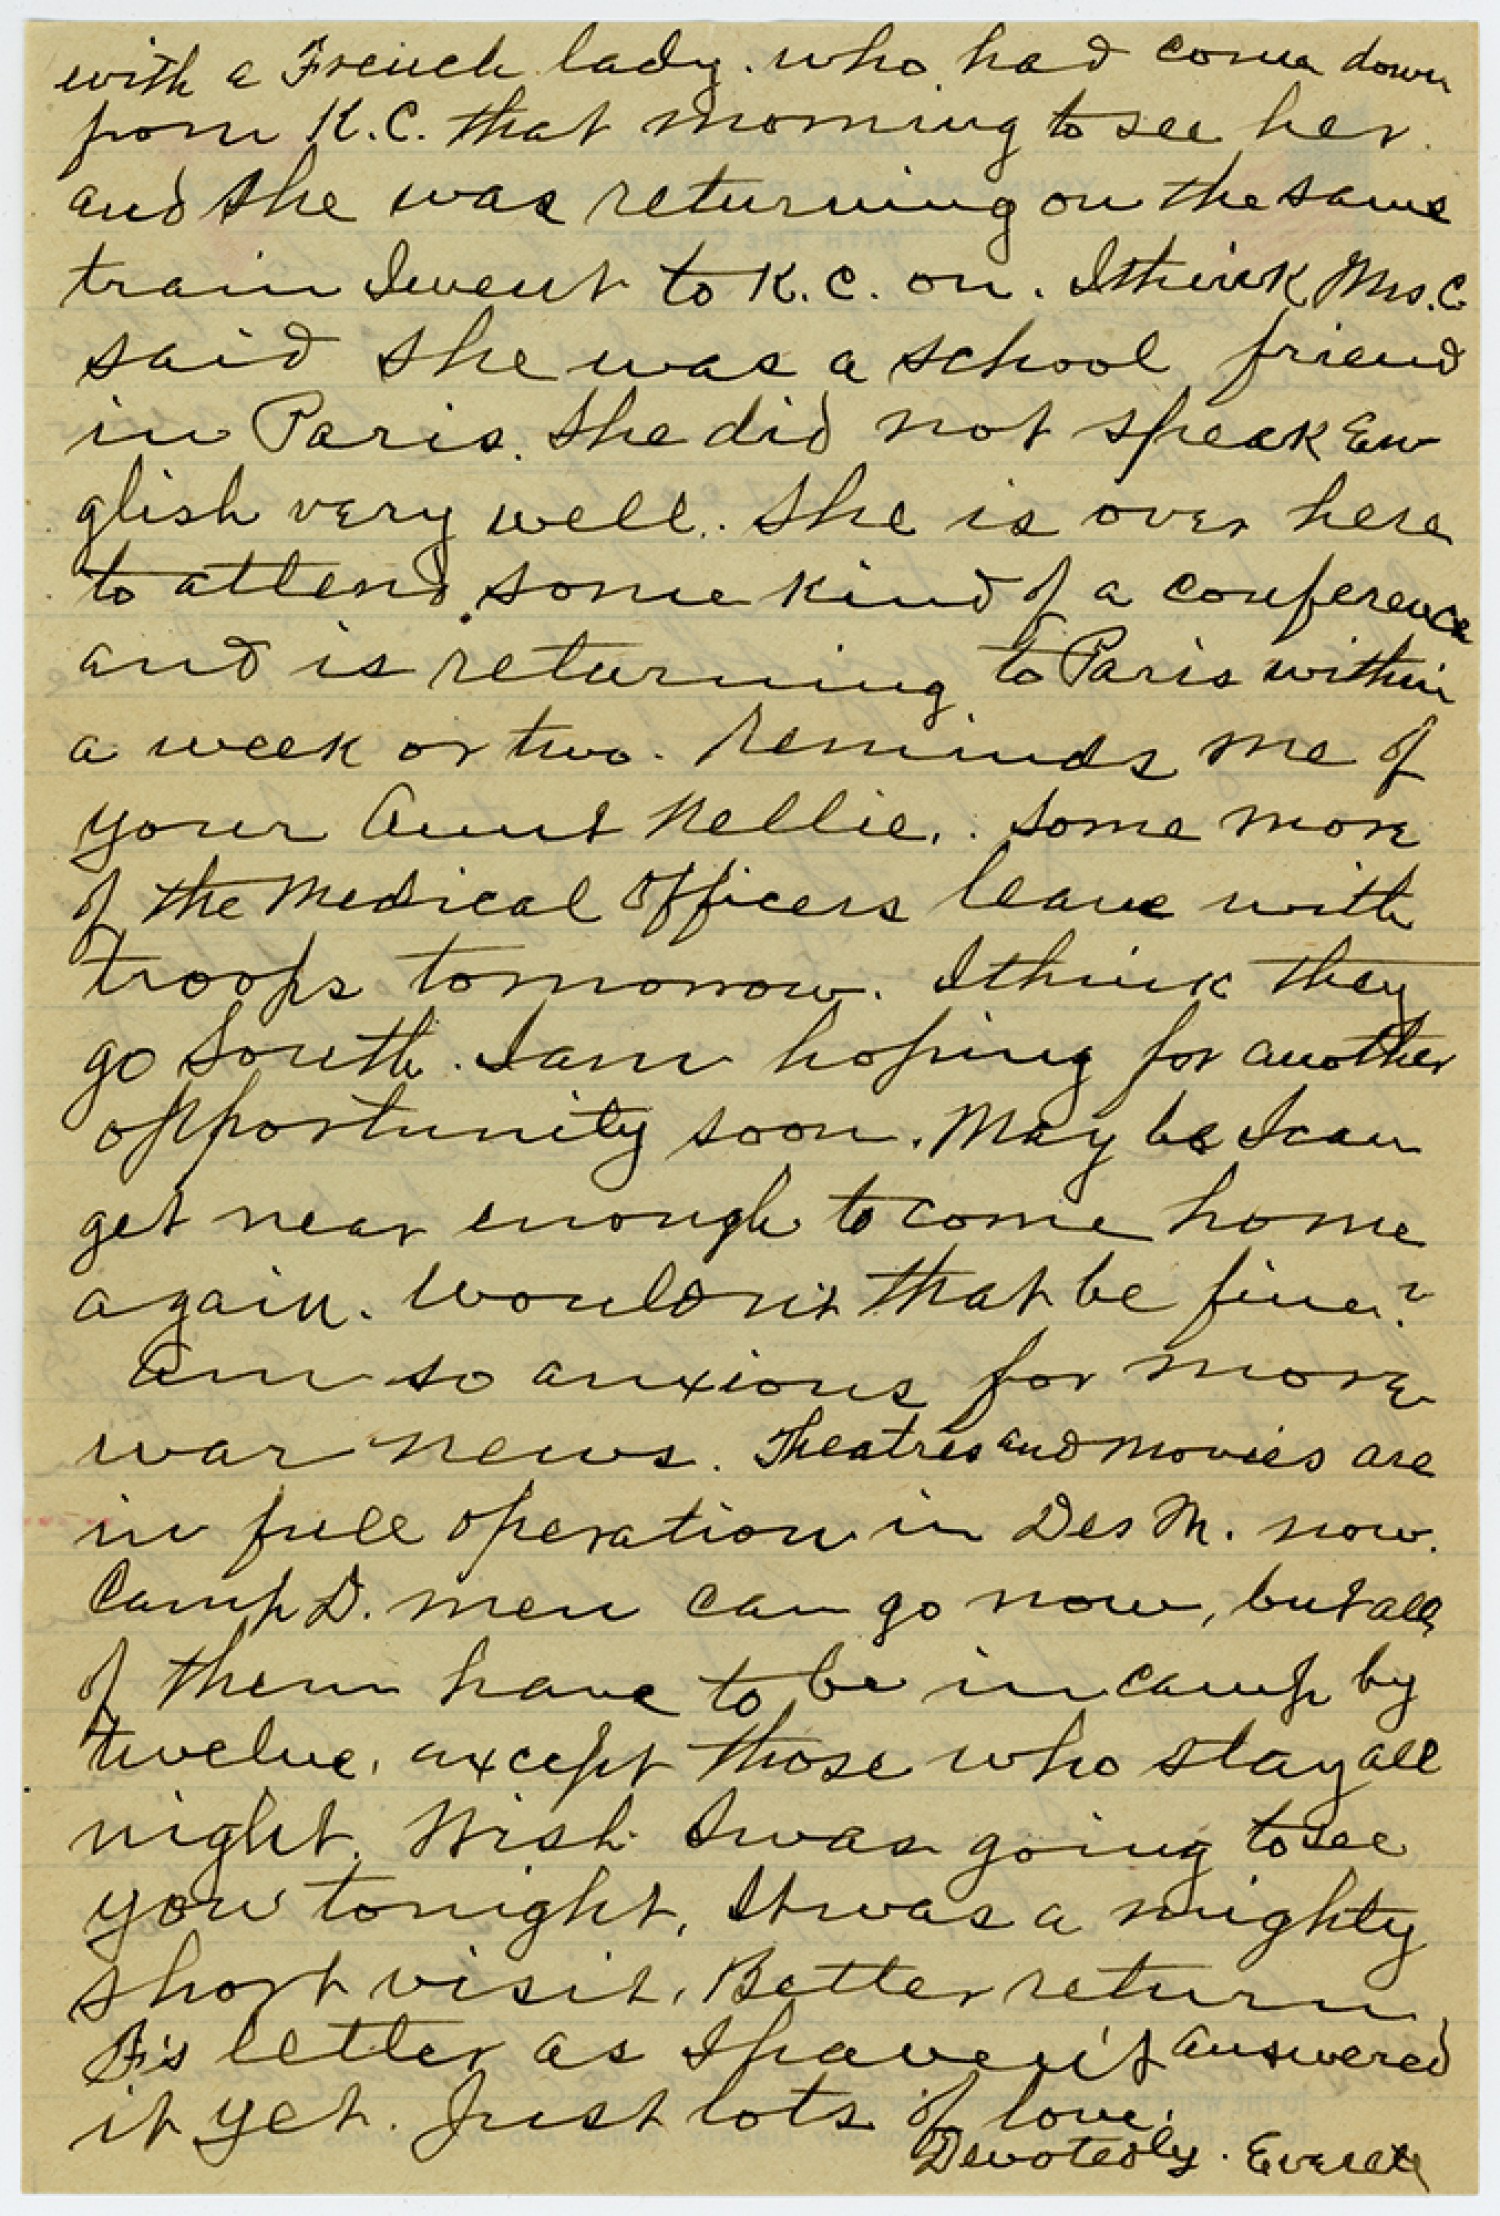 with a French lady. who had come down
from K.C. that morning to see her.
and she was returning on the same
train I went to K.C. on. I think Mrs. C
said she was a school friend
in Paris. She did not speak En-
glish very well. She is over here
to attend some kind of a conference
and is returning to Paris within
a week or two. Reminds me of
your Aunt Nellie. Some more
of the Medical Officers leave with
troops tomorrow. I think they
go South. I am hoping for another
opportunity soon. May be I can
get near enough to come home
again. Wouldn't that be fine?
Am so anxious for more
war news. Theatres and movies are
in full operation in Des M. now.
Camp D. men can go now, but all
of them have to be in camp by
twelve, except those who stay all
night. Wish I was going to see
you tonight. It was a mighty
short visit. Better return
F's letter as I haven't answered
it yet. Just lots of love.
Devotedly. Everett